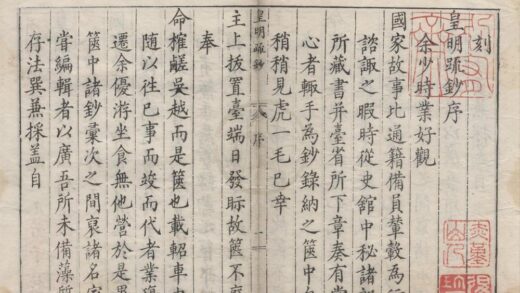 刻
皇明疏鈔序
余少時業好觀
國家故事比通籍備員輦轂為
諮諏之暇時從史館中秘諸
所藏書并臺省所下章奏有
心者輙手為鈔錄納之篋中
稍稍見虎一毛已幸
皇明疏鈔
序
一
主上拔置臺端日發眎故篋不
奉
命榷鹺吳越而是篋也載軺車
隨以往已事而竣而代者業
遷余優游坐食無他營於是
篋中諸鈔彙次之間裒諸名
嘗編輯者以廣吾所未備藻所
存法巽兼採盖自